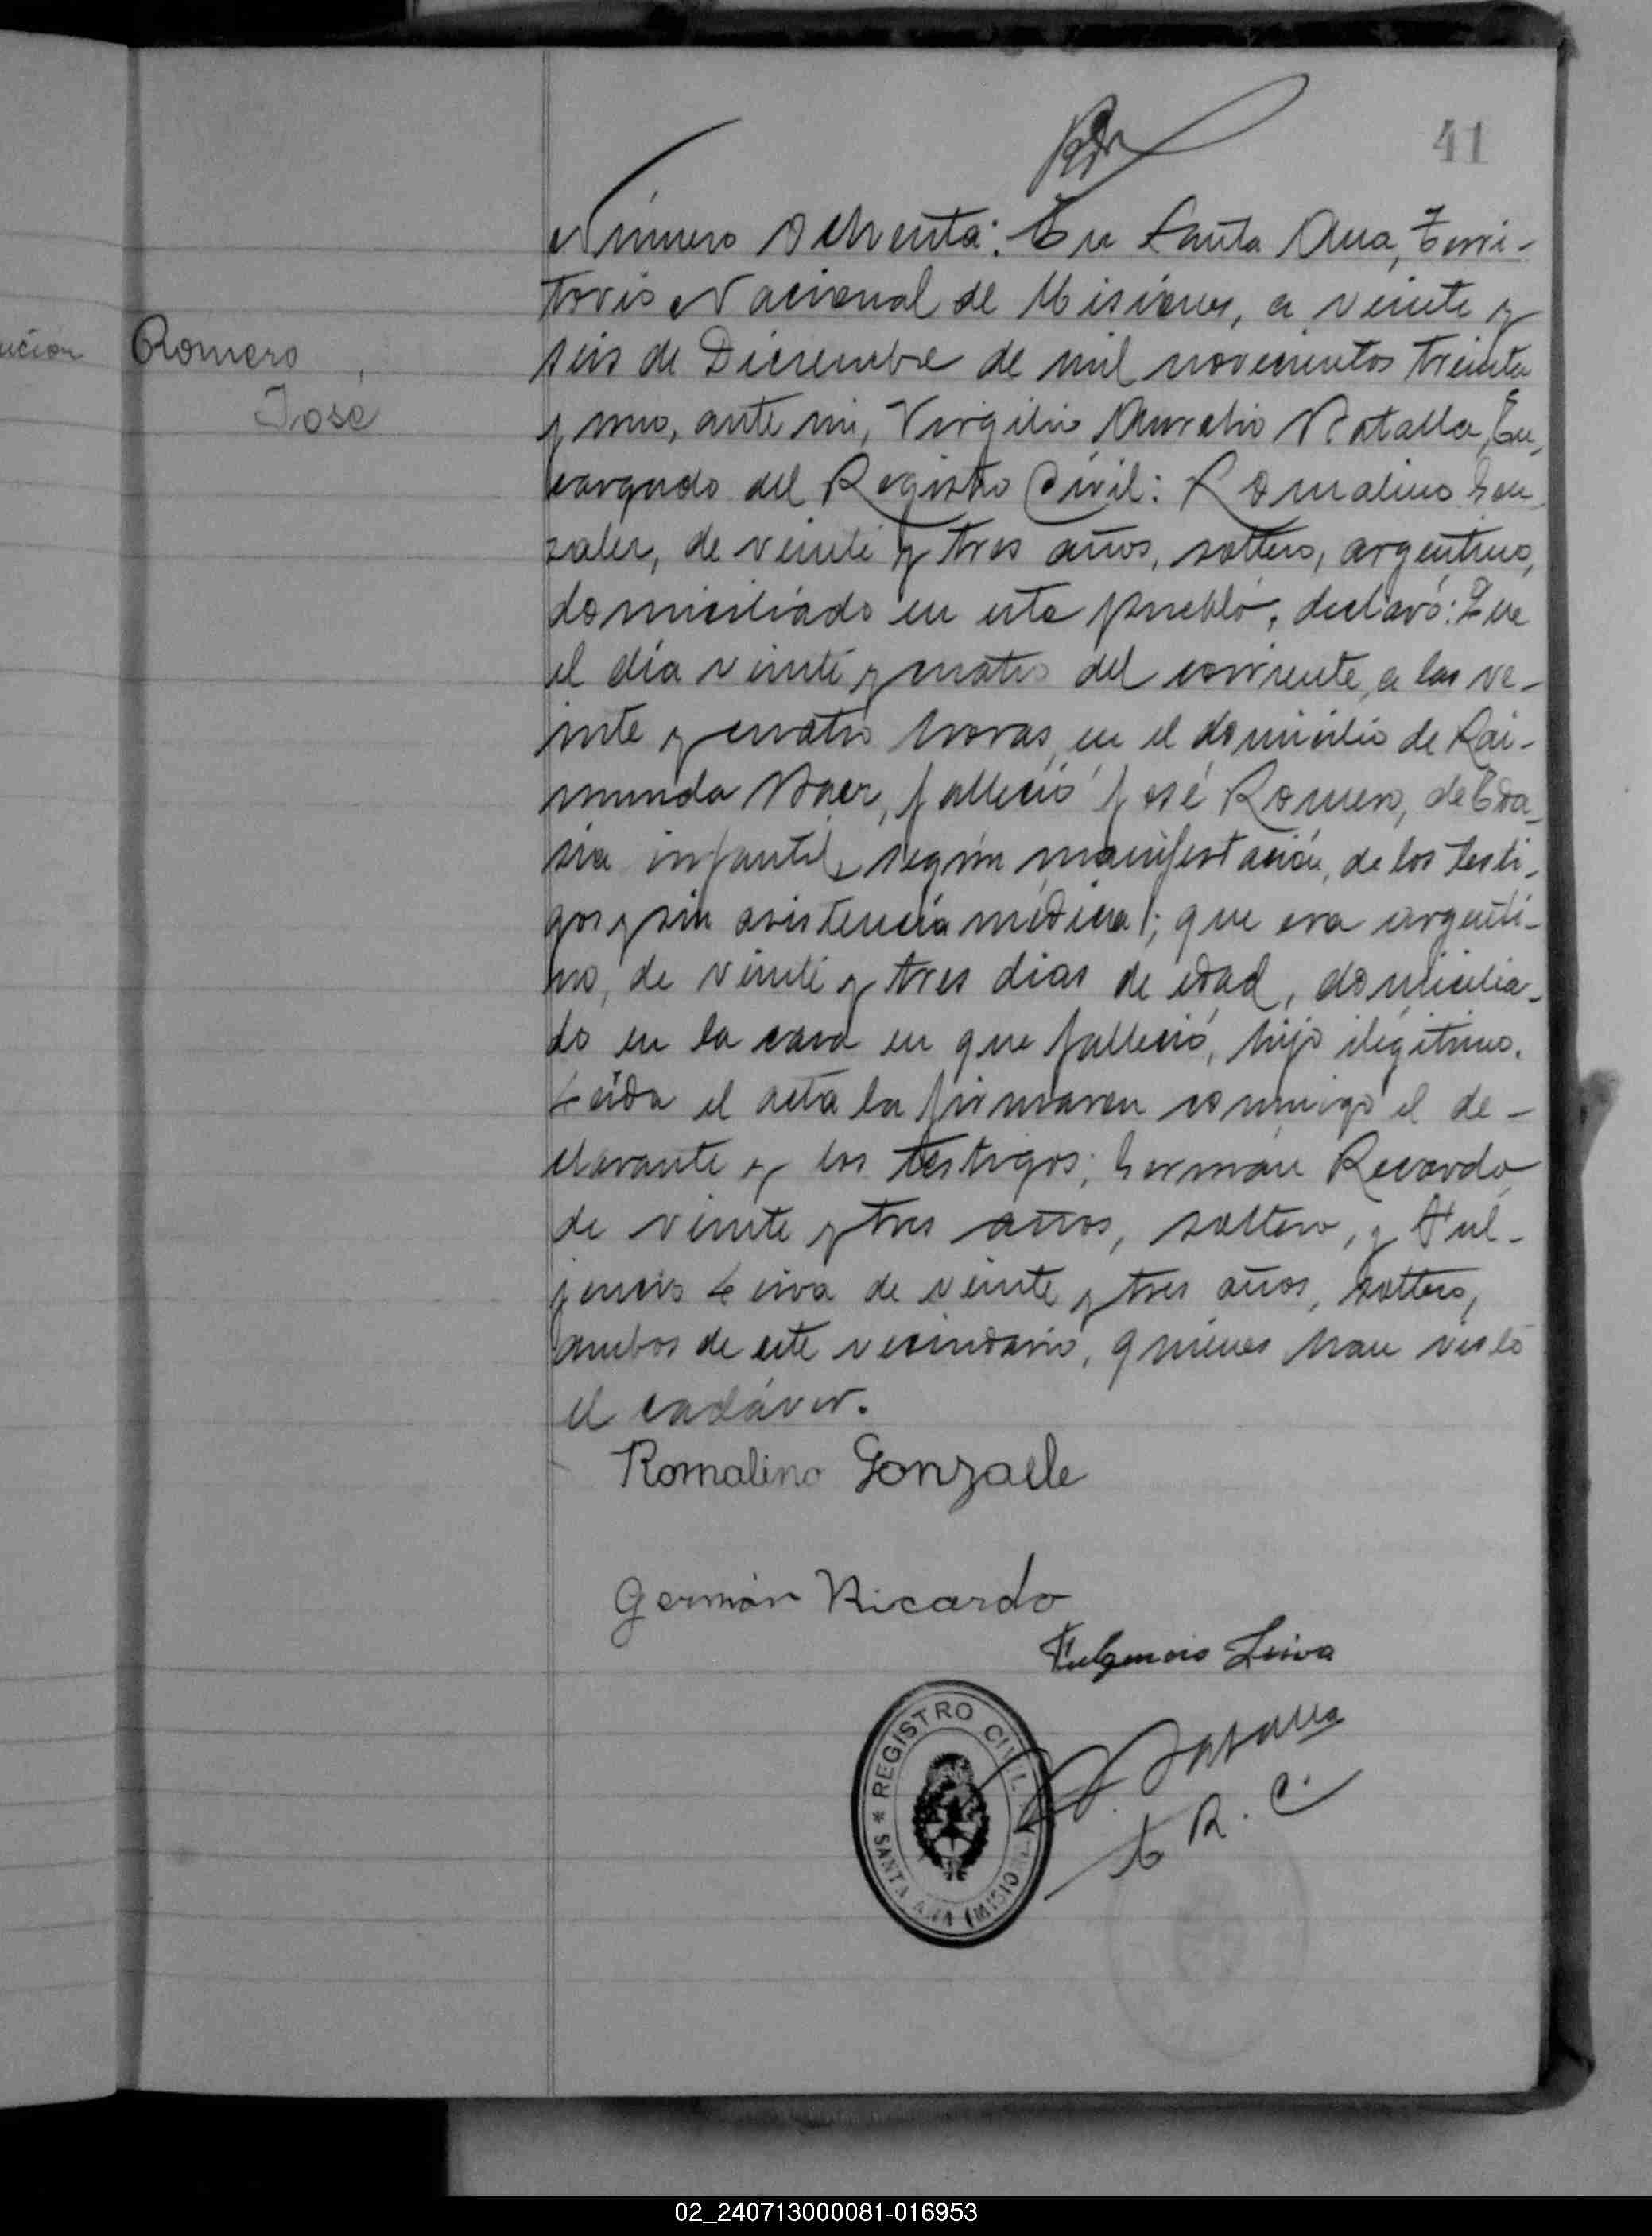 41
Número Ochenta: En Santa Ana, Terri-
torio Nacional de Misiones, a veinte y
seis de Diciembre de mil novecientos treinta
y uno, ante mi, Virgilio Aurelio Batalla, En-
cargado del Registro Civil: Romalino Gon-
zalez, de veinte y tres años, soltero, argentino,
domiciliado en este pueblo, declaró: Que
el día veinte y cuatro del corriente, a las ve-
inte y cuatro horas, en el domicilio de Rai-
munda Baez, falleció José Romero, de
infantil, según manifestación, de los testi-
gos y sin asistencia médica; que era argenti-
no, de veinte y tres dias de edad, domicilia-
do en la casa en que falleció, hijo ilegítimo.
Leída el acta la firmaron conmigo el de-
clarante y los testigos; Germán Recardo
de veinte y tres años, soltero, y Ful-
jencio Leiva de veinte y tres años, soltero,
ambos de este vecindario, quienes han visto
el cadáver.
ucion
Romero,
José
Romalino Gonzalle
Germán Ricardo
Fulgencio Leiva
Batalla
E. R. C.
REGISTRO CIVIL
* SANTA ANA (MISIONES)
02_240713000081-016953